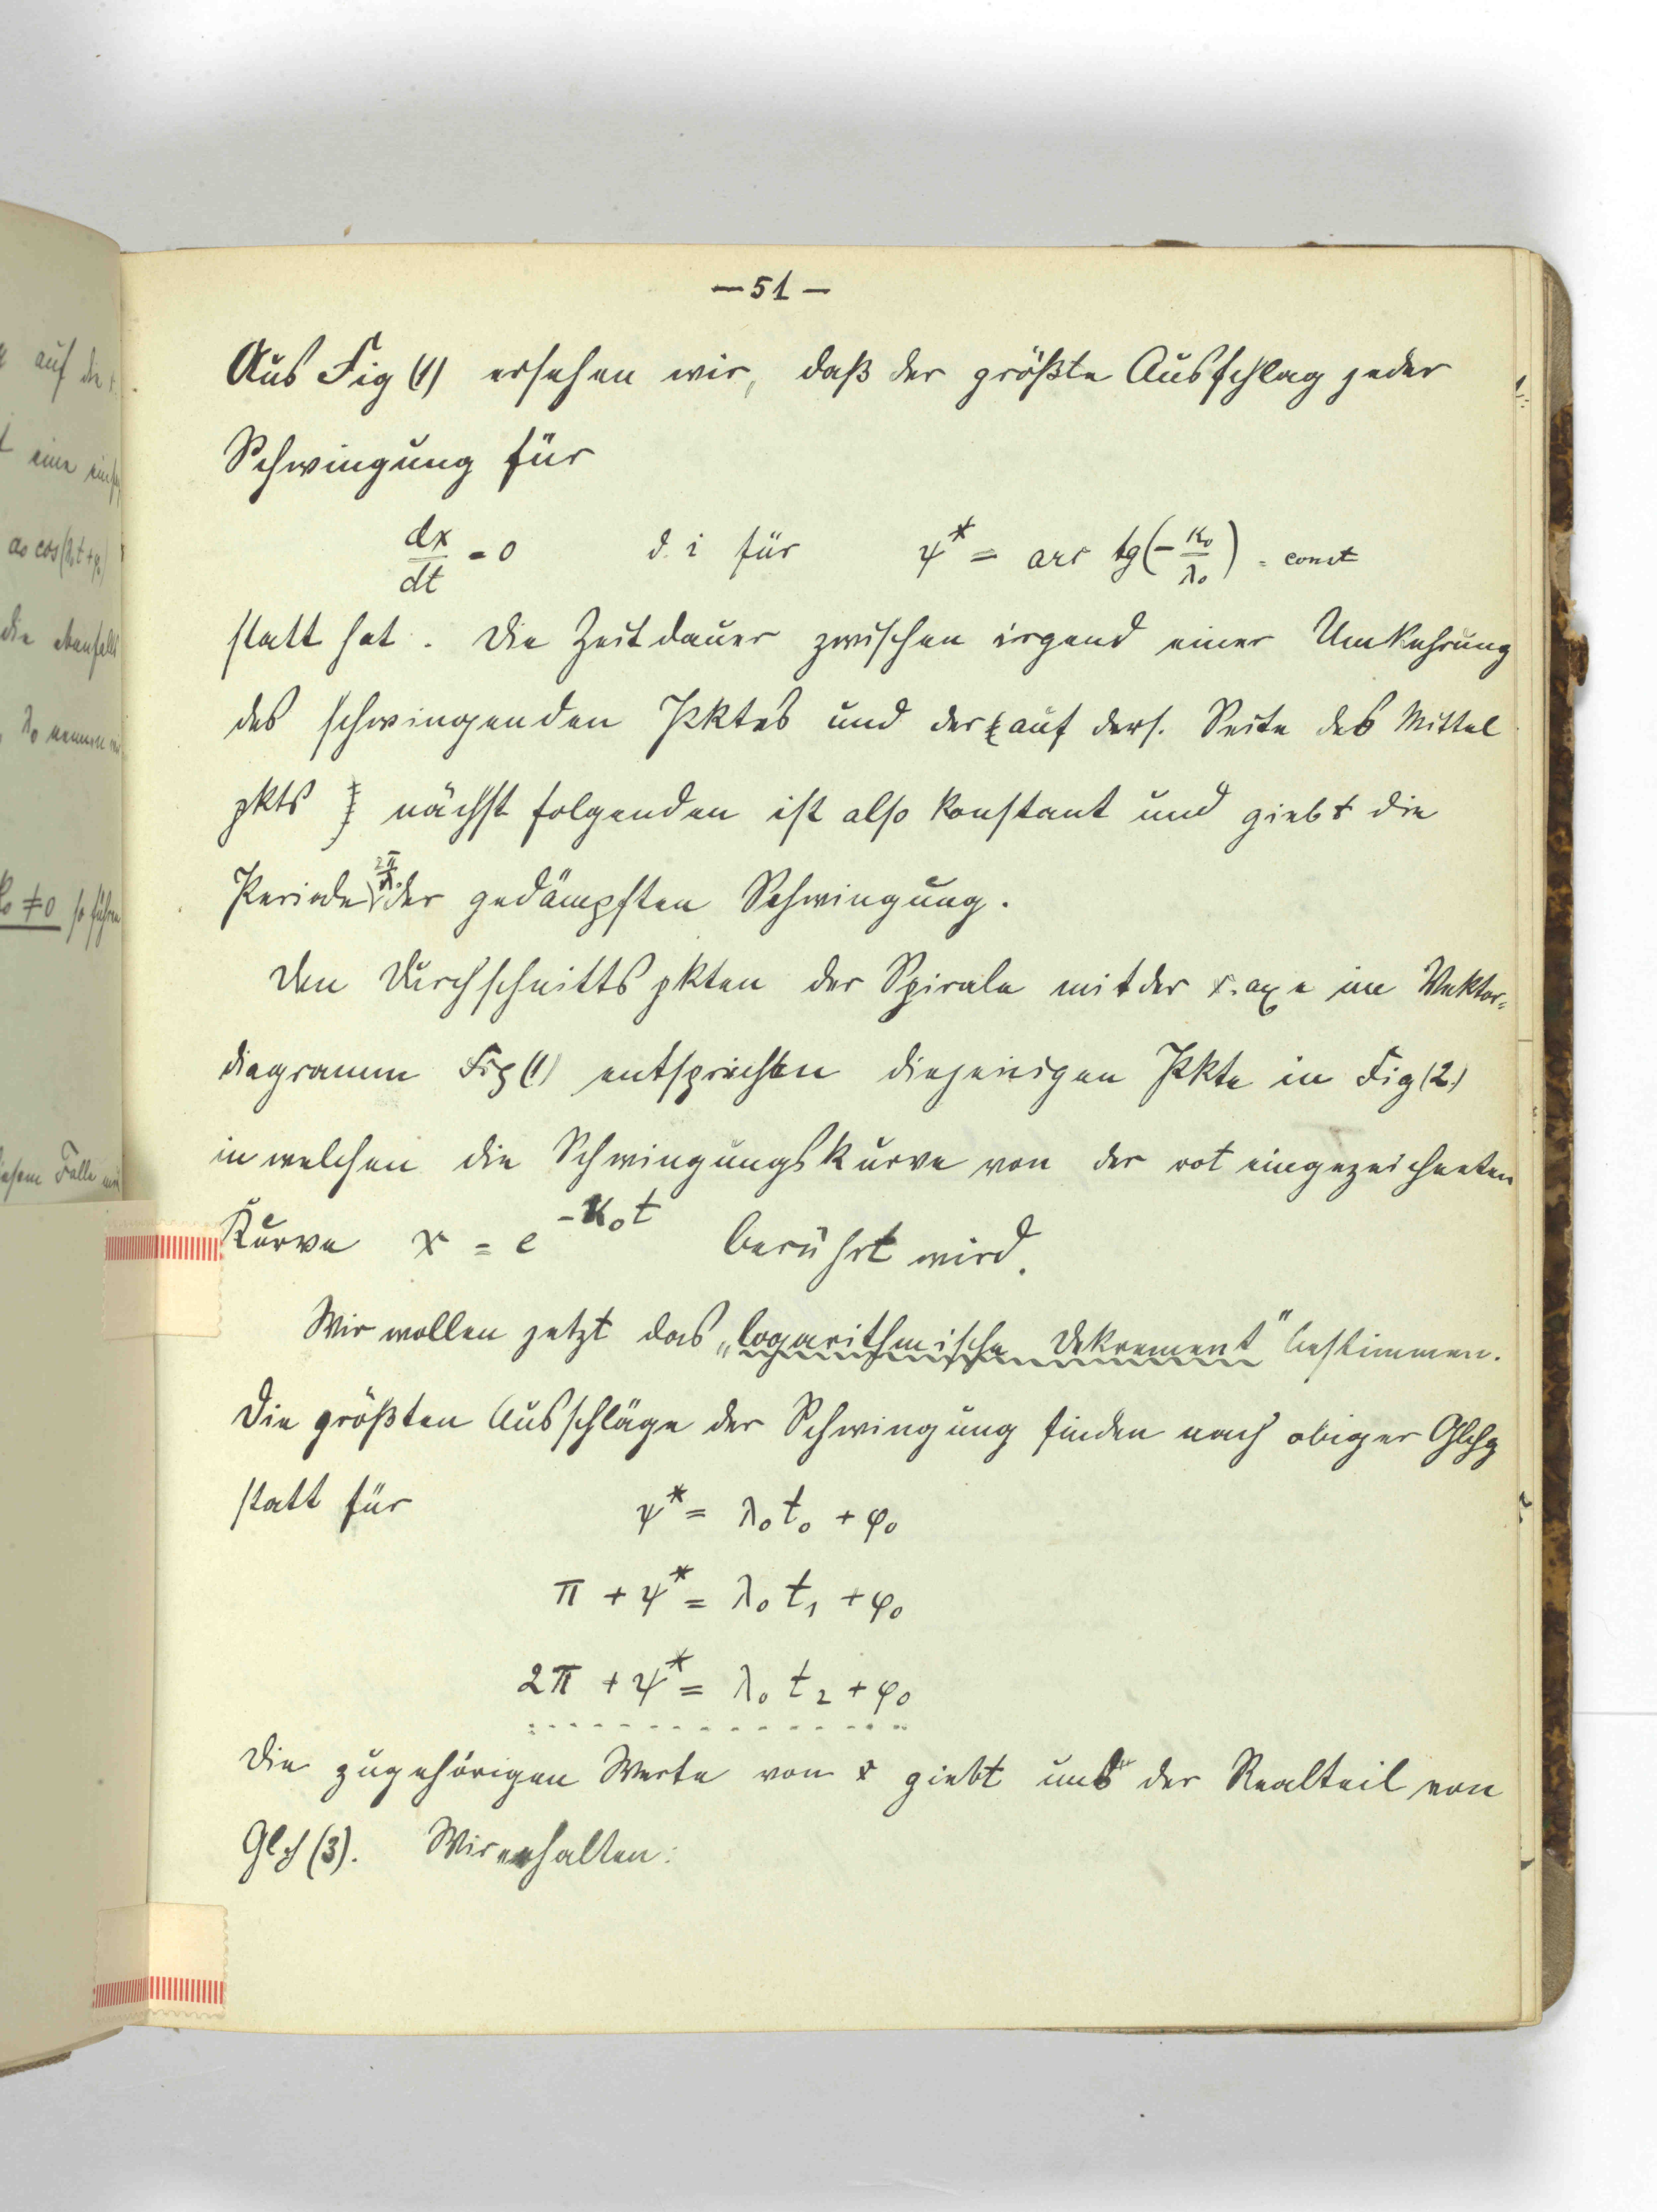 — 51 —
Aus Fig (1) ersehen wir, daß der größte Ausschlag jeder
Schwingung für
dx/dt = 0 d. i für ψ* = arc tg(-κ₀/λ₀) = const
statt hat. Die Zeitdauer zwischen irgend einer Umkehrung
des schwingenden Pktes und der { auf ders. Seite des Mittel
pkts } nächst folgenden ist also konstant und giebt die
Periode 2π/λ₀ der gedämpften Schwingung.
Den Durchschnittspkten der Spirale mit der x. axe im Vektor-
diagramm Fig (1) entsprechen diejenigen Pkte in Fig (2)
in welchen die Schwingungskurve von der rot eingezeichneten
Kurve x = e^{-κ₀t} berührt wird.
Wir wollen jetzt das „logarithmische Dekrement" bestimmen.
Die größten Ausschläge der Schwingung finden nach obiger Glchg
statt für ψ* = λ₀t₀ + φ₀
π + ψ* = λ₀t₁ + φ₀
2π + ψ* = λ₀t₂ + φ₀
Die zugehörigen Werte von x giebt uns der Realteil von
Glch (3). Wir erhalten:
auf der
eine
a₀ cos(λ₀t + φ₀)
die ebenfalls
λ₀ nennen
≠ 0 so führen
diesem Falle